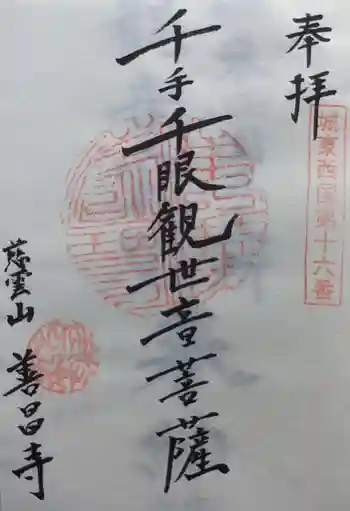 奉拝
城東西国第十六番
千手千眼観世音菩薩
慈雲山
善昌寺